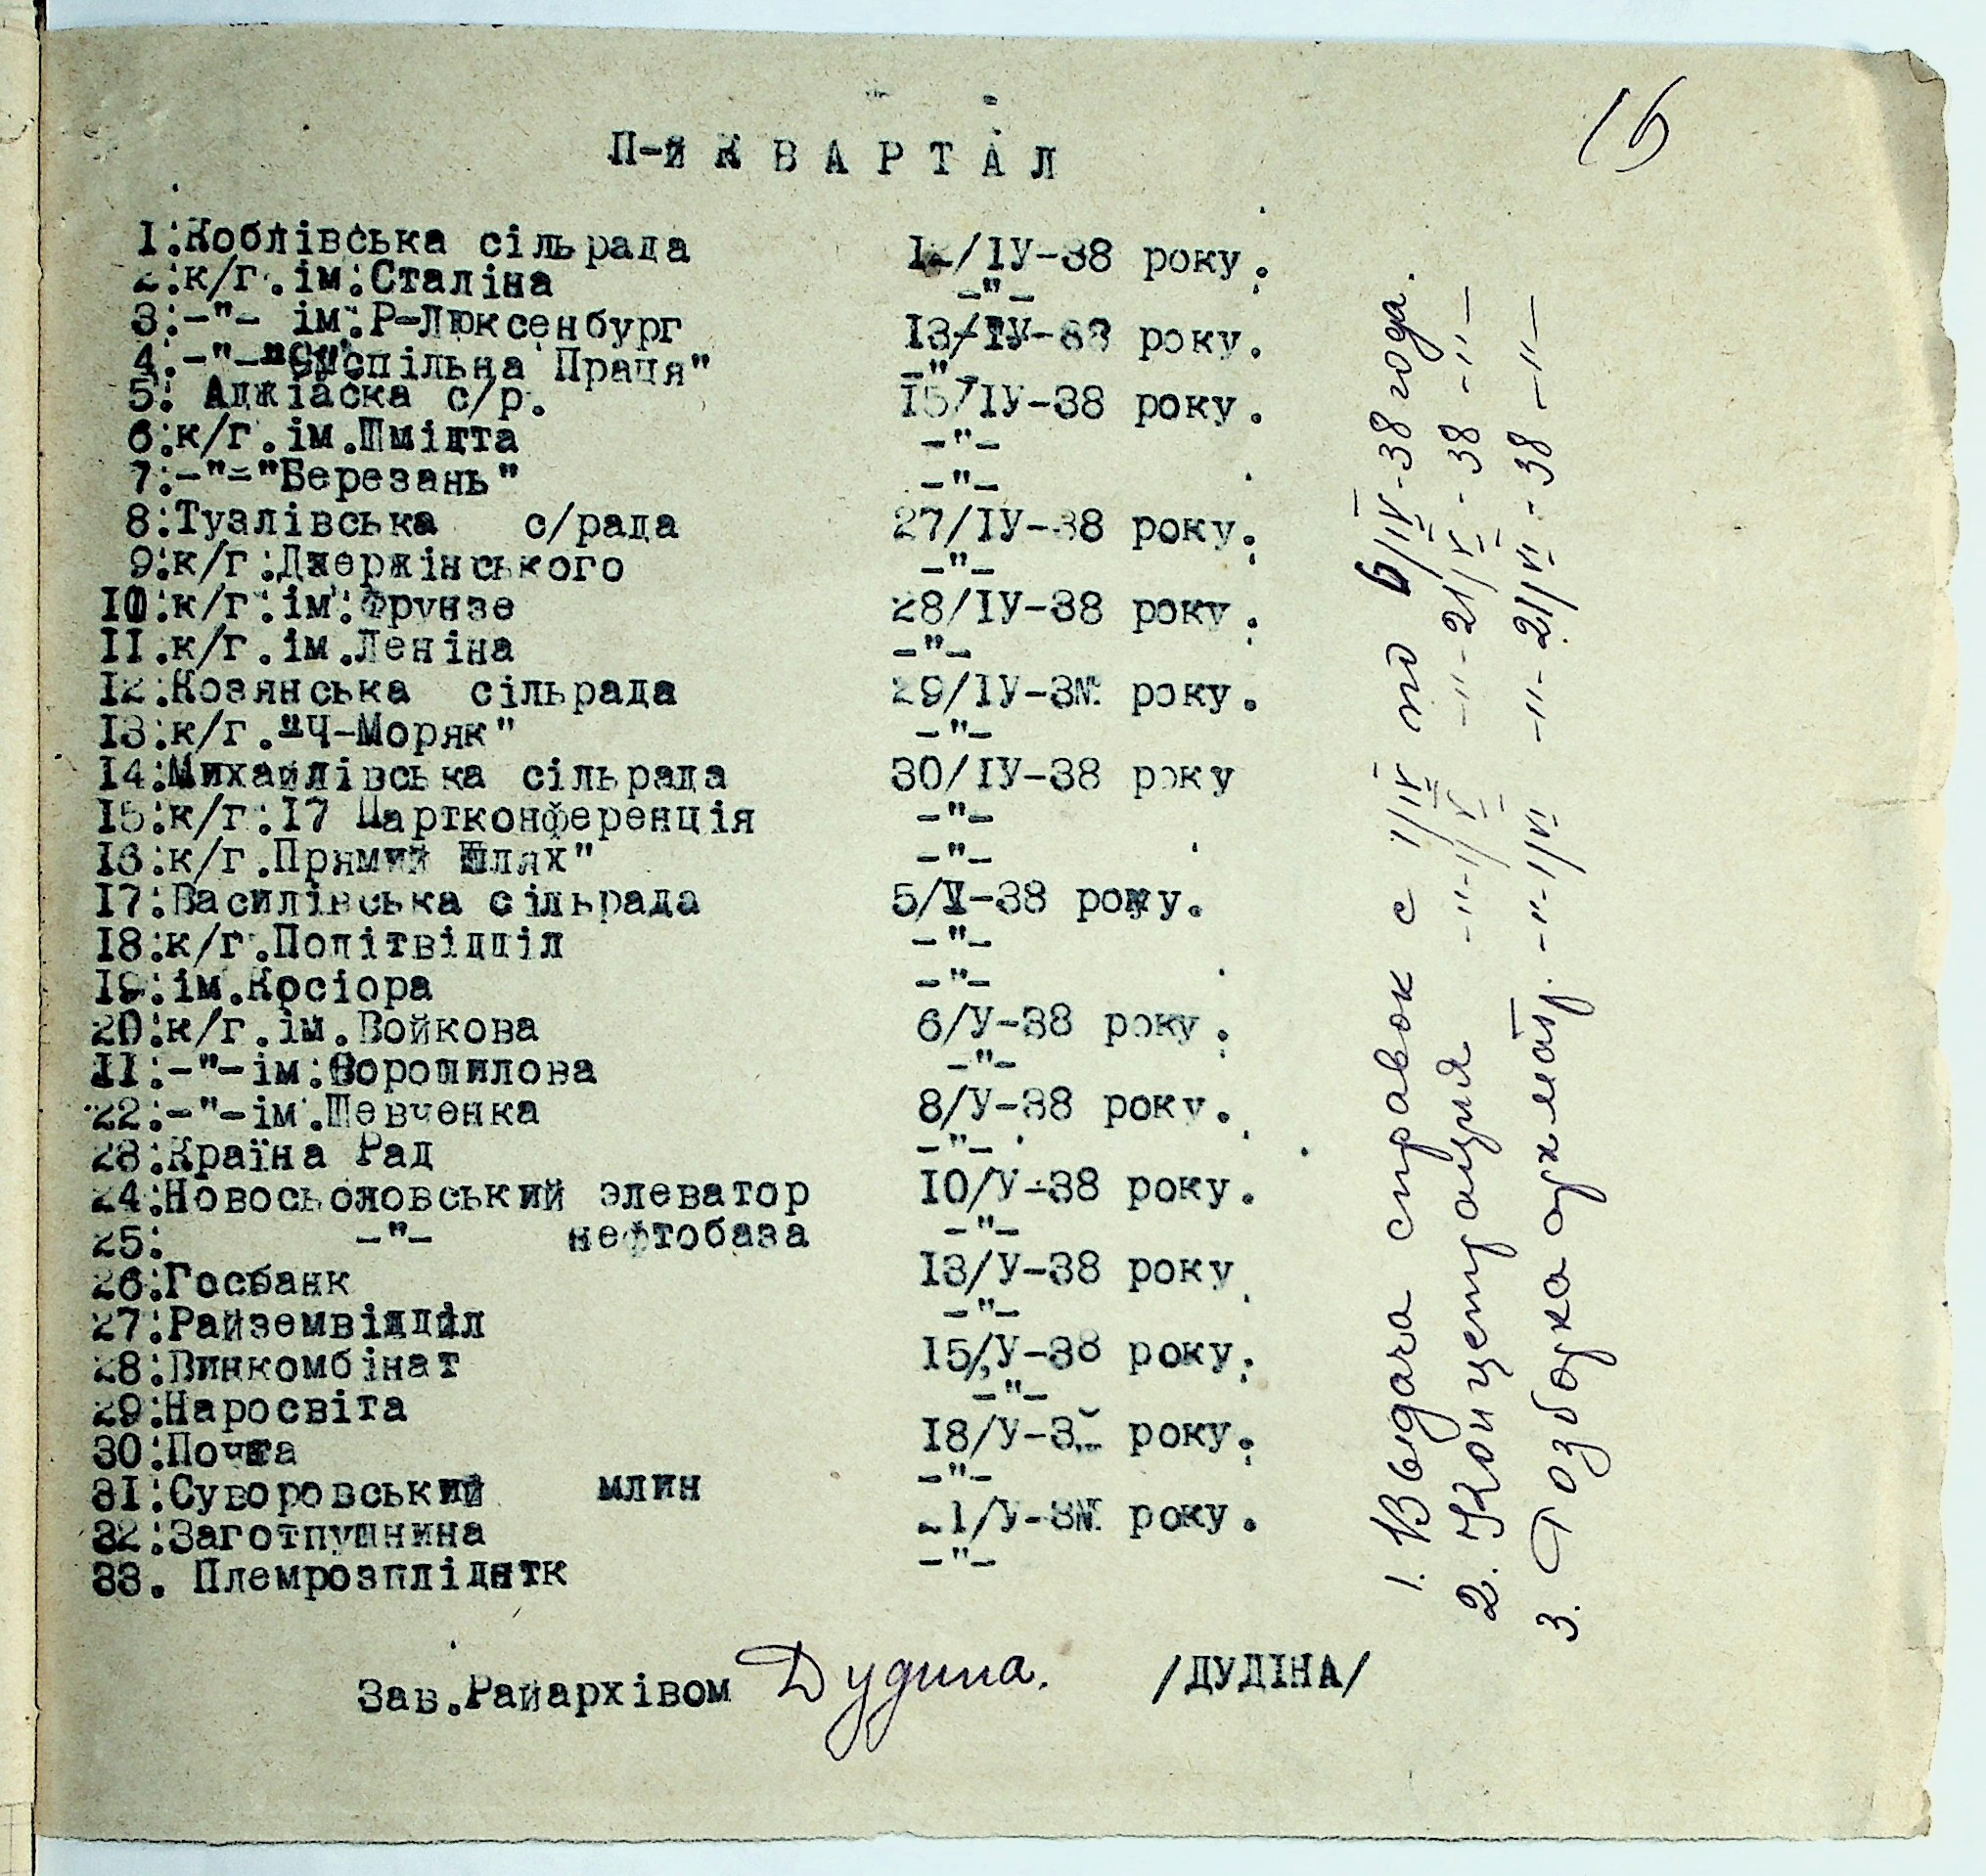 16
П-й К В А Р Т А Л
1.Коблівська сільрада 12/ІУ-38 року.
2.к/г.ім.Сталіна -"-
3.-"- ім.Р-Люксенбург 13/ІУ-38 року.
4.-"-"Суспільна Праця" -"-
5. Аджіаска с/р. 15/ІУ-38 року.
6.к/г.ім.Шмідта -"-
7.-"-"Березань" -"-
8.Тузлівська с/рада 27/ІУ-38 року.
9.к/г.Джержінського -"-
10.к/г.ім.Фрунзе 28/ІУ-38 року.
11.к/г.ім.Леніна -"-
12.Козянська сільрада 29/ІУ-3№ року.
13.к/г."Ч-Моряк" -"-
14.Михайлівська сільрада 30/ІУ-38 року
15.к/г.17 Партконференція -"-
16.к/г.Прямий Шлях" -"-
17.Василівська сільрада 5/У-38 року.
18.к/г.Політвідділ -"-
19.ім.Косіора -"-
20.к/г.ім.Войкова 6/У-38 року.
11.-"-ім.Ворошилова -"-
22.-"-ім.Шевченка 8/У-38 року.
23.Країна Рад -"-
24.Новосьоловський элеватор 10/У-38 року.
25. -"- нефтобаза -"-
26.Госбанк 13/У-38 року
27.Райземвідділ -"-
28.Винкомбінат 15/У-38 року.
29.Наросвіта -"-
30.Почта 18/У-3 року.
31.Суворовський млин -"-
32.Заготпушнина 21/У-3№ року.
33. Племрозплідятк -"-
Зав.Райархівом Дудина. /ДУДІНА/
1. Выдача справок с 1/IV по 6/IV-38 года.
2. Концентрация -"-1/V -"-21/V-38-"-
3. Розборка арх мат. -"-1/VI -"-21/VI-38-"-